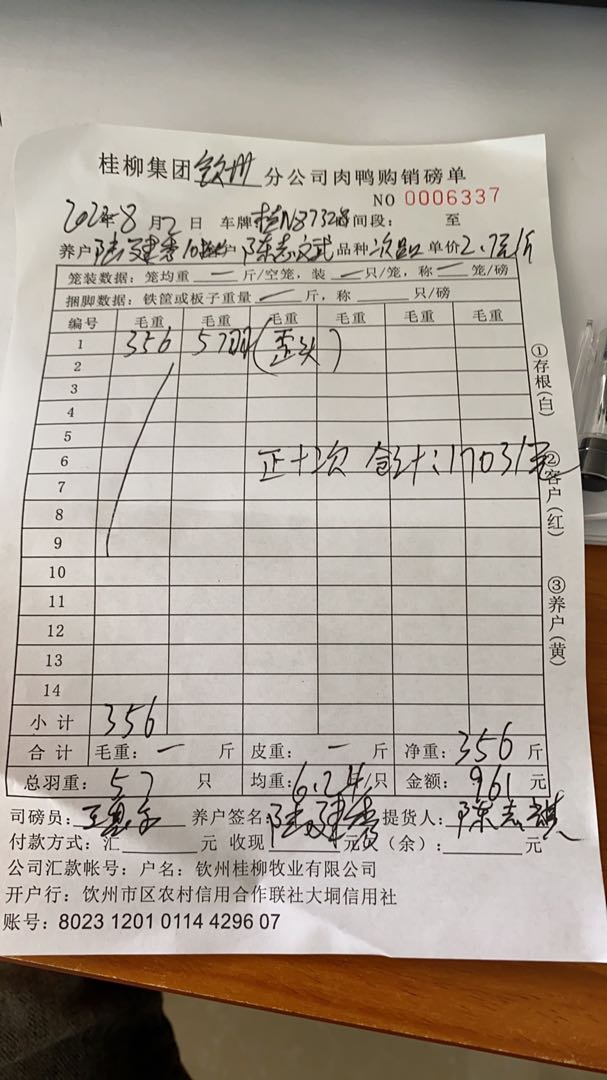 桂柳集团 钦州 分公司肉鸭购销磅单
NO 0006337
8 月 2 日 车牌 时间段: 至
养户 客户 陈志 品种 次品 单价 2.7元/斤
笼装数据: 笼均重 — 斤/空笼, 装 — 只/笼, 称 — 笼/磅
捆脚数据: 铁筐或板子重量 — 斤, 称 只/磅
编号 毛重 毛重 毛重 毛重 毛重 毛重
1 356 57羽 (歪头)
2
3
4
5
6 正+次 合计:17031元
7
8
9
10
11
12
13
14
小计 356
合计 毛重: — 斤 皮重: — 斤 净重: 356 斤
总羽重: 57 只 均重: 6.24 斤/只 金额: 961 元
司磅员: 养户签名: 提货人: 陈志
付款方式: 汇 元 收现 元 欠(余): 元
公司汇款帐号: 户名: 钦州桂柳牧业有限公司
开户行: 钦州市区农村信用合作联社大垌信用社
账号: 8023 1201 0114 4296 07
①存根(白)
②客户(红)
③养户(黄)